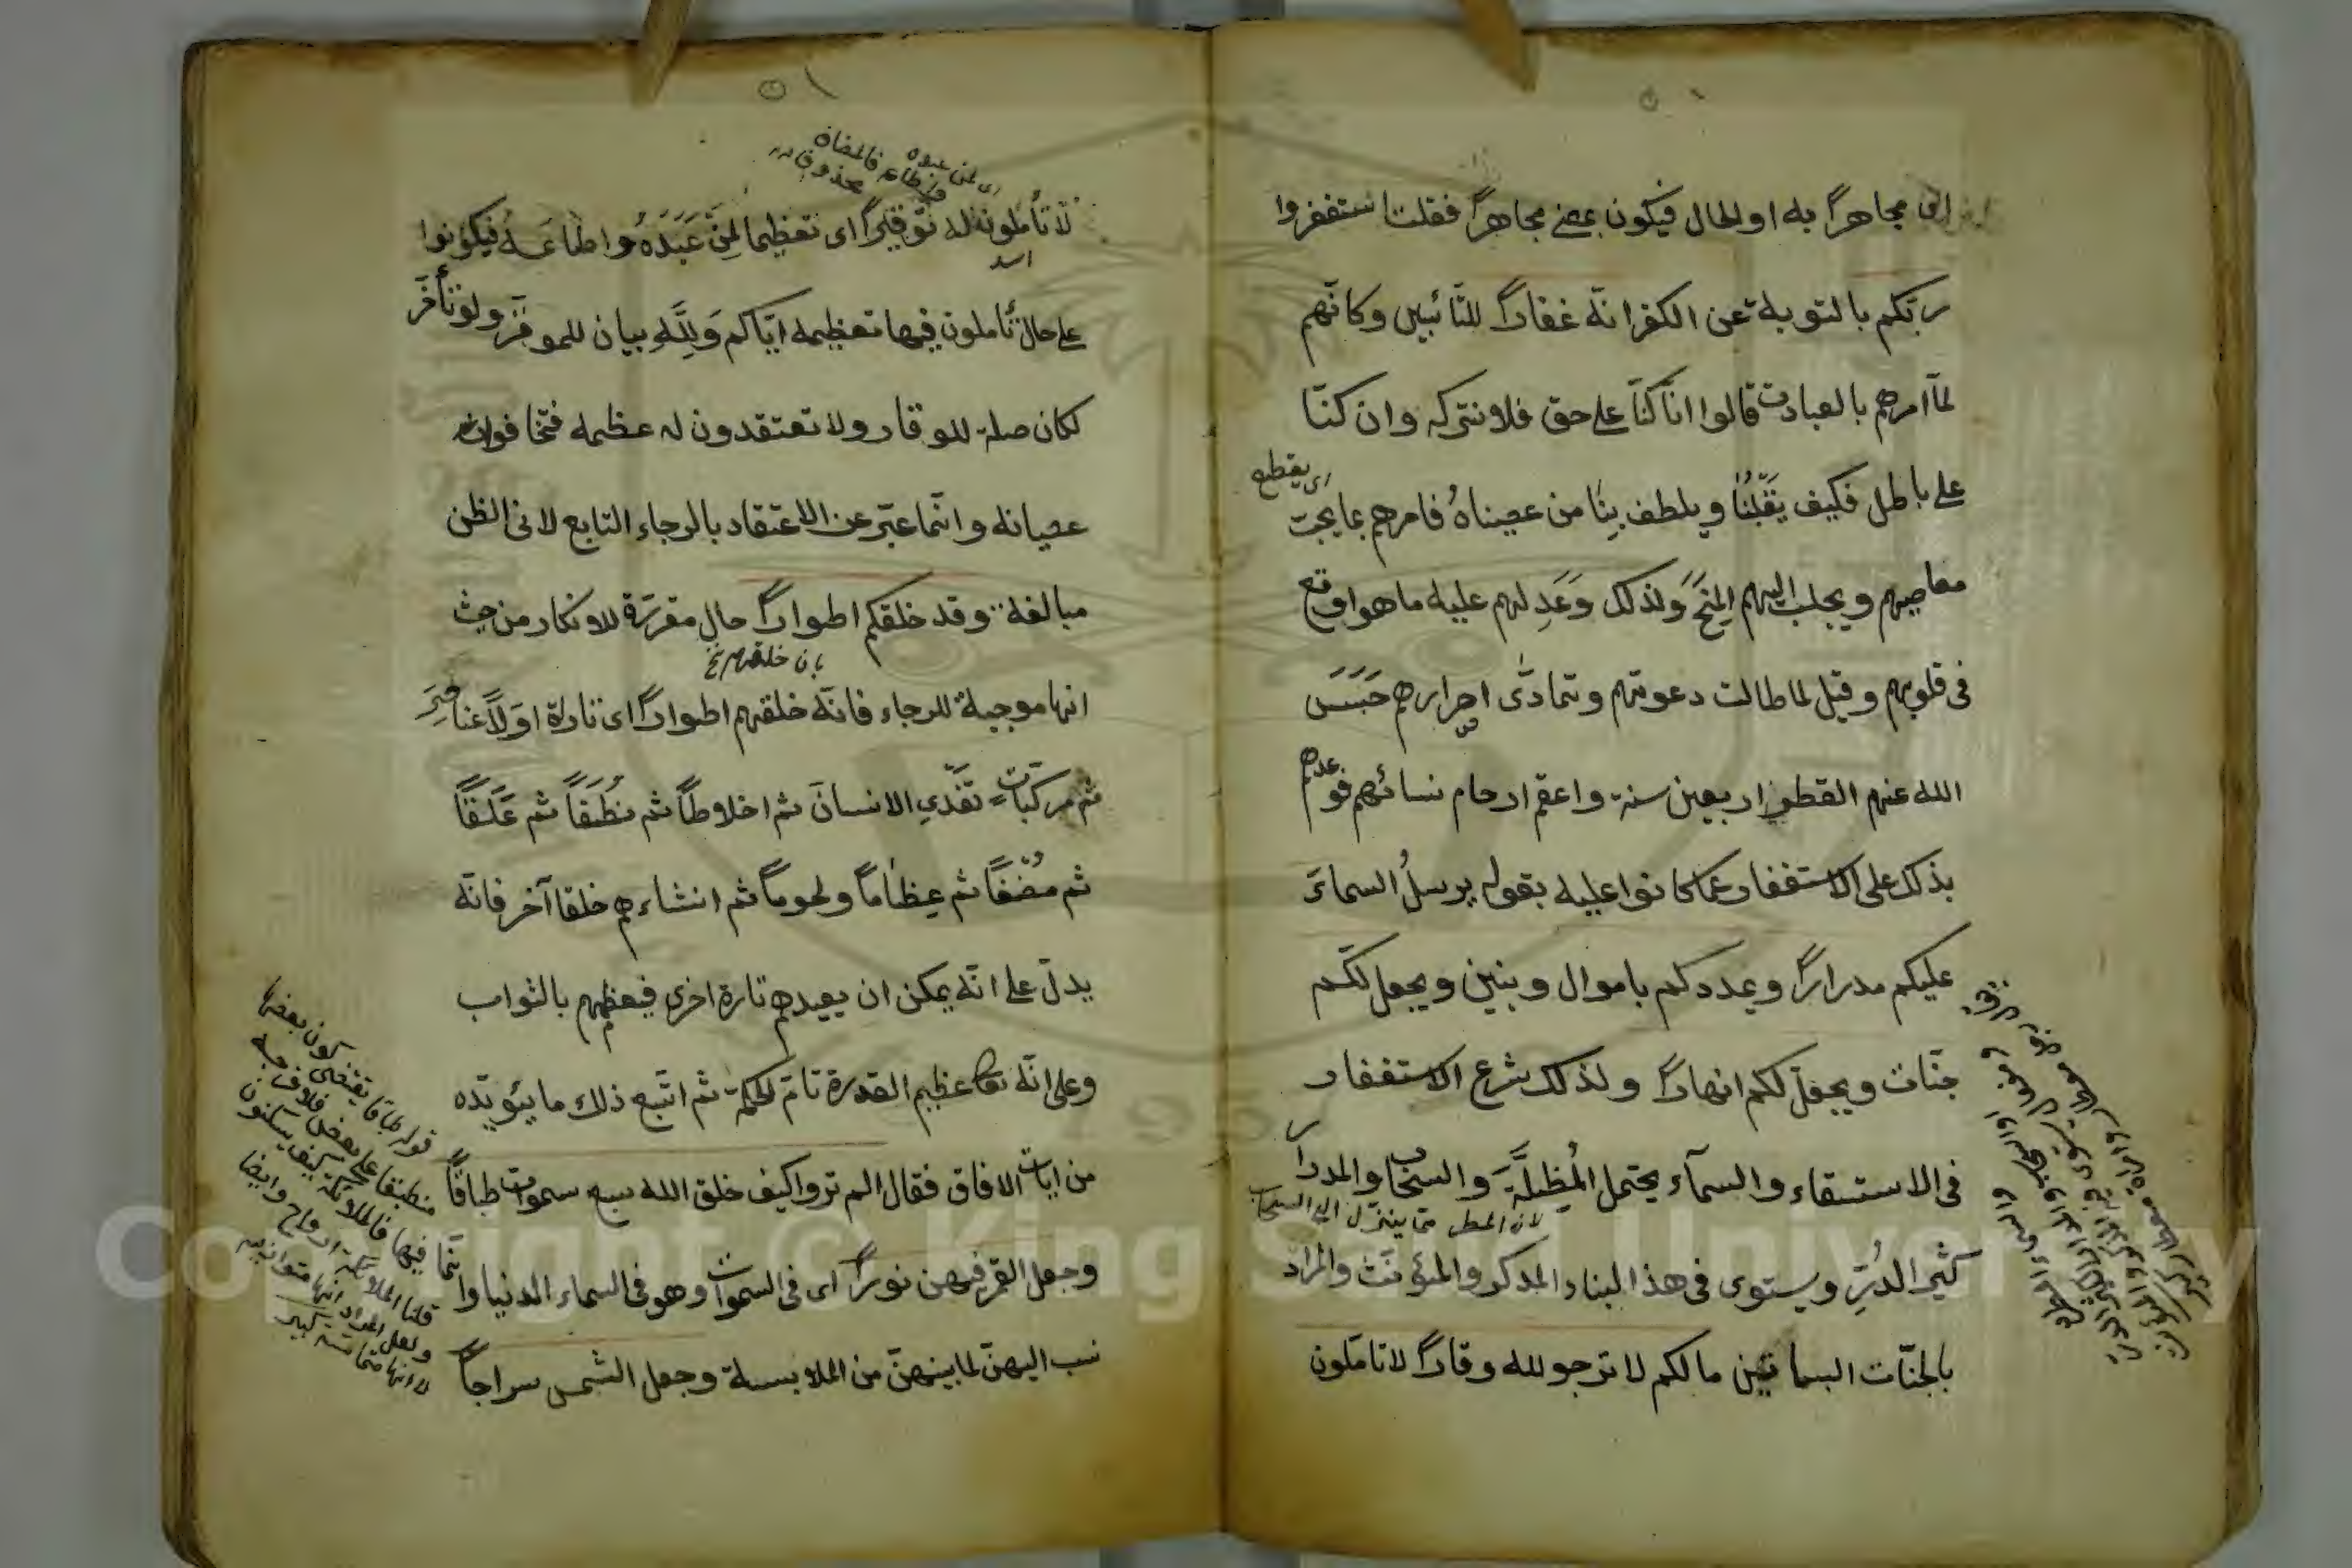 اى مجاهراً به او الحال فيكون بمعنى مجاهراً فقلت استغفروا
ربكم بالتوبة عن الكفر انه غفاراً للتائبين وكانّهم
لمّا امرهم بالعبادت قالوا انّا كنّا على حق فلا نتركه وان كنّا
على باطل فكيف يَقْبَلُنا ويلطف بِنا من عصيناهُ فامرهم بما يجبّ
اى يقطع
معاصيهم ويجلب اليهم المِنَحَ ولذلك وَعَدِ لهم عليه ما هو اوقع
فى قلوبهم وقيل لما طالت دعوتهم وتمادى اصرارهم حَبَسَ
الله عنهم القطر اربعين سنة واعقم ارحام نسائهم فوعدهم
بذلك على الاستغفار عما كانوا عليه بقوله يرسلُ السماءَ
عليكم مدراراً ويمددكم باموال وبنين ويجعل لكم
جنّات ويجعل لكم انهاراً ولذلك شرع الاستغفار
فى الاستسقاء والسمآء يحتمل المُظِلَّةَ والسحاب والمدرار
لان المطر مما ينزل الى السحاب
كثير الدُرّ ويستوى فى هذا البناء المذكر والمؤنث والمراد
بالجنّات البساتين ما لكم لا ترجو لله وقاراً لا تاملون
اى لمن عبده
واطاعه فالمضاف
محذوف
لا تأملون له توقيراً اى تعظيما لِمَنْ عَبَدَهُ واطاعَهُ فيكونوا
على حال تأملون فيها تعظيمه ايّاكم وَلِلّهِ بيان للموقر ولو تأخّر
لكان صلة للوقار ولا تعتقدون له عظمه فتخافون
عصيانه وانّما عبّر عن الاعتقاد بالرجاء التابع لادنى الظن
مبالغة وقد خلقكم اطواراً حال مقررة للانكار من حيث
بان خلقهم
انها موجبة للرجاء فانّه خلقهم اطواراً اى تارة اوّلاً عناصرَ
ثم مركباتٍ تغذّي الانسانَ ثم اخلاطاً ثم نُطَفاً ثم عَلَقاً
ثم مُضَغاً ثم عِظاماً ولحوماً ثم انشاءهم خلقا آخر فانّه
يدلّ على انّه يمكن ان يعيدهم تارة اخرى فيعظمهم بالثواب
وعلى انّه تعالى عظيم القدرة تامّ الحكمة ثم اتبع ذلك ما يؤيّده
من ايات الافاق فقال الم تروا كيف خلق الله سبع سموات طباقاً
وجعل القمر فيهن نوراً اى فى السموات وهو فى السماء الدنيا وانّما
نسب اليهنّ لما بينهنّ من الملابسة وجعل الشمس سراجاً
قوله طباقا يقتضى كون بعضها
منطبقا على بعض فلا فرجة
فيها فالملائكة كيف يسكنون
قلنا الملائكة ارواح وايضا
ولعل المراد انها متوازية
لا انها متماسّة كبير